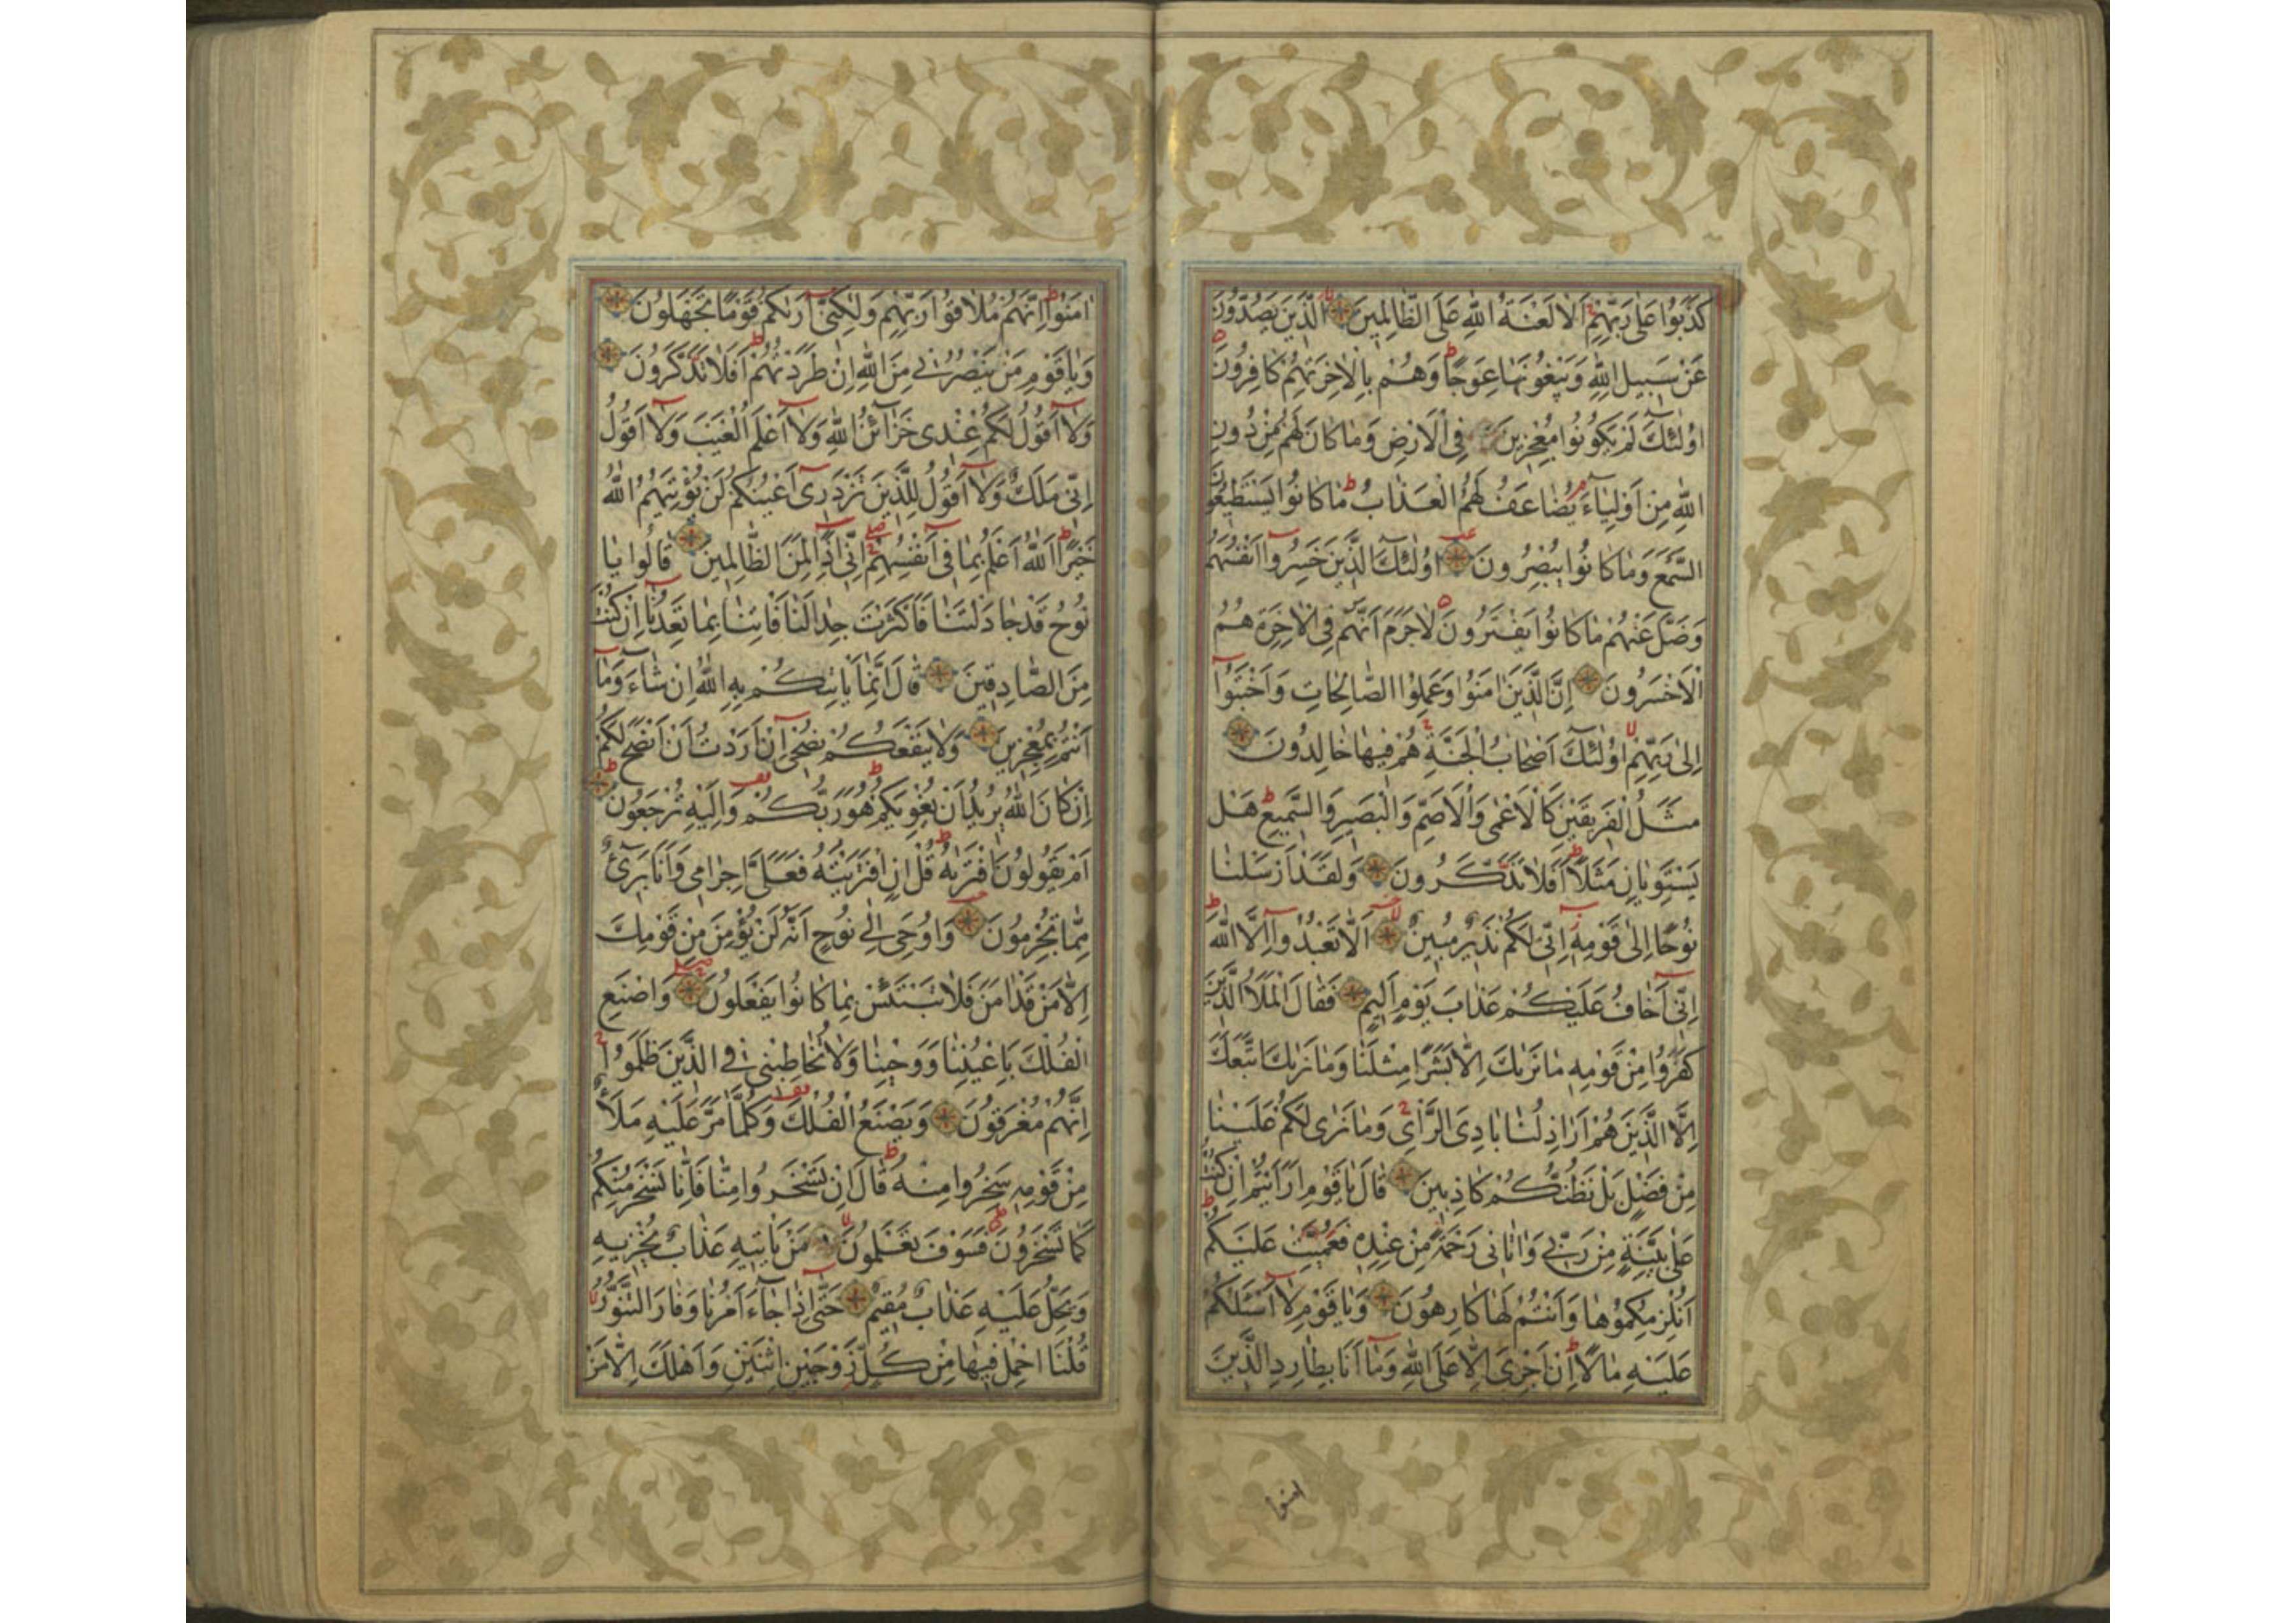 كَذَبُوا عَلٰى رَبِّهِمْ اَلَا لَعْنَةُ اللّٰهِ عَلَى الظَّالِمِينَ الَّذِينَ يَصُدُّونَ
عَنْ سَبِيلِ اللّٰهِ وَيَبْغُونَهَا عِوَجًا وَهُمْ بِالْاٰخِرَةِ هُمْ كَافِرُونَ
اُولٰئِكَ لَمْ يَكُونُوا مُعْجِزِينَ فِي الْاَرْضِ وَمَا كَانَ لَهُمْ مِنْ دُونِ
اللّٰهِ مِنْ اَوْلِيَاءَ يُضَاعَفُ لَهُمُ الْعَذَابُ مَا كَانُوا يَسْتَطِيعُونَ
السَّمْعَ وَمَا كَانُوا يُبْصِرُونَ اُولٰئِكَ الَّذِينَ خَسِرُوا اَنْفُسَهُمْ
وَضَلَّ عَنْهُمْ مَا كَانُوا يَفْتَرُونَ لَا جَرَمَ اَنَّهُمْ فِي الْاٰخِرَةِ هُمُ
الْاَخْسَرُونَ اِنَّ الَّذِينَ اٰمَنُوا وَعَمِلُوا الصَّالِحَاتِ وَاَخْبَتُوا
اِلٰى رَبِّهِمْ اُولٰئِكَ اَصْحَابُ الْجَنَّةِ هُمْ فِيهَا خَالِدُونَ
مَثَلُ الْفَرِيقَيْنِ كَالْاَعْمٰى وَالْاَصَمِّ وَالْبَصِيرِ وَالسَّمِيعِ هَلْ
يَسْتَوِيَانِ مَثَلًا اَفَلَا تَذَكَّرُونَ وَلَقَدْ اَرْسَلْنَا
نُوحًا اِلٰى قَوْمِهِ اِنِّي لَكُمْ نَذِيرٌ مُبِينٌ اَلَّا تَعْبُدُوا اِلَّا اللّٰهَ
اِنِّي اَخَافُ عَلَيْكُمْ عَذَابَ يَوْمٍ اَلِيمٍ فَقَالَ الْمَلَاُ الَّذِينَ
كَفَرُوا مِنْ قَوْمِهِ مَا نَرٰيكَ اِلَّا بَشَرًا مِثْلَنَا وَمَا نَرٰيكَ اتَّبَعَكَ
اِلَّا الَّذِينَ هُمْ اَرَاذِلُنَا بَادِيَ الرَّأْيِ وَمَا نَرٰى لَكُمْ عَلَيْنَا
مِنْ فَضْلٍ بَلْ نَظُنُّكُمْ كَاذِبِينَ قَالَ يَا قَوْمِ اَرَاَيْتُمْ اِنْ كُنْتُ
عَلٰى بَيِّنَةٍ مِنْ رَبِّي وَاٰتَانِي رَحْمَةً مِنْ عِنْدِهِ فَعُمِّيَتْ عَلَيْكُمْ
اَنُلْزِمُكُمُوهَا وَاَنْتُمْ لَهَا كَارِهُونَ وَيَا قَوْمِ لَا اَسْئَلُكُمْ
عَلَيْهِ مَالًا اِنْ اَجْرِيَ اِلَّا عَلَى اللّٰهِ وَمَا اَنَا بِطَارِدِ الَّذِينَ
امنوا
اٰمَنُوا اِنَّهُمْ مُلَاقُوا رَبِّهِمْ وَلٰكِنِّي اَرٰيكُمْ قَوْمًا تَجْهَلُونَ
وَيَا قَوْمِ مَنْ يَنْصُرُنِي مِنَ اللّٰهِ اِنْ طَرَدْتُهُمْ اَفَلَا تَذَكَّرُونَ
وَلَا اَقُولُ لَكُمْ عِنْدِي خَزَائِنُ اللّٰهِ وَلَا اَعْلَمُ الْغَيْبَ وَلَا اَقُولُ
اِنِّي مَلَكٌ وَلَا اَقُولُ لِلَّذِينَ تَزْدَرِي اَعْيُنُكُمْ لَنْ يُؤْتِيَهُمُ اللّٰهُ
خَيْرًا اَللّٰهُ اَعْلَمُ بِمَا فِي اَنْفُسِهِمْ اِنِّي اِذًا لَمِنَ الظَّالِمِينَ قَالُوا يَا
نُوحُ قَدْ جَادَلْتَنَا فَاَكْثَرْتَ جِدَالَنَا فَاْتِنَا بِمَا تَعِدُنَا اِنْ كُنْتَ
مِنَ الصَّادِقِينَ قَالَ اِنَّمَا يَأْتِيكُمْ بِهِ اللّٰهُ اِنْ شَاءَ وَمَا
اَنْتُمْ بِمُعْجِزِينَ وَلَا يَنْفَعُكُمْ نُصْحِي اِنْ اَرَدْتُ اَنْ اَنْصَحَ لَكُمْ
اِنْ كَانَ اللّٰهُ يُرِيدُ اَنْ يُغْوِيَكُمْ هُوَ رَبُّكُمْ وَاِلَيْهِ تُرْجَعُونَ
اَمْ يَقُولُونَ افْتَرٰيهُ قُلْ اِنِ افْتَرَيْتُهُ فَعَلَيَّ اِجْرَامِي وَاَنَا بَرِيءٌ
مِمَّا تُجْرِمُونَ وَاُوحِيَ اِلٰى نُوحٍ اَنَّهُ لَنْ يُؤْمِنَ مِنْ قَوْمِكَ
اِلَّا مَنْ قَدْ اٰمَنَ فَلَا تَبْتَئِسْ بِمَا كَانُوا يَفْعَلُونَ وَاصْنَعِ
الْفُلْكَ بِاَعْيُنِنَا وَوَحْيِنَا وَلَا تُخَاطِبْنِي فِي الَّذِينَ ظَلَمُوا
اِنَّهُمْ مُغْرَقُونَ وَيَصْنَعُ الْفُلْكَ وَكُلَّمَا مَرَّ عَلَيْهِ مَلَاٌ
مِنْ قَوْمِهِ سَخِرُوا مِنْهُ قَالَ اِنْ تَسْخَرُوا مِنَّا فَاِنَّا نَسْخَرُ مِنْكُمْ
كَمَا تَسْخَرُونَ فَسَوْفَ تَعْلَمُونَ مَنْ يَأْتِيهِ عَذَابٌ يُخْزِيهِ
وَيَحِلُّ عَلَيْهِ عَذَابٌ مُقِيمٌ حَتّٰى اِذَا جَاءَ اَمْرُنَا وَفَارَ التَّنُّورُ
قُلْنَا احْمِلْ فِيهَا مِنْ كُلٍّ زَوْجَيْنِ اثْنَيْنِ وَاَهْلَكَ اِلَّا مَنْ